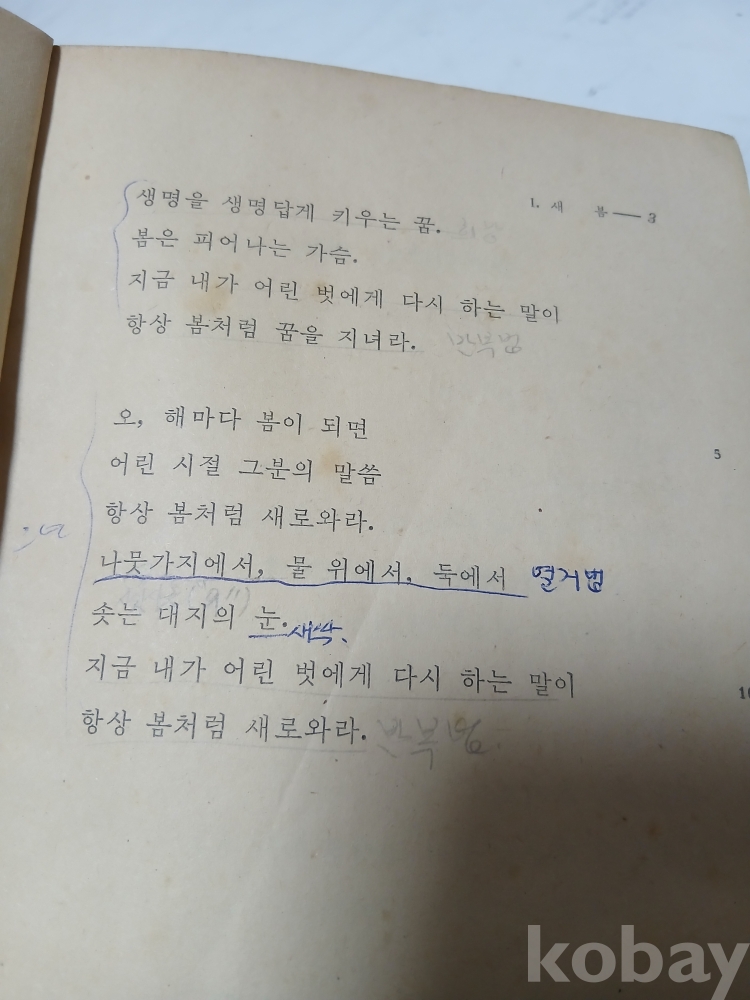 1. 새 봄 — 3
생명을 생명답게 키우는 꿈.
봄은 피어나는 가슴.
지금 내가 어린 벗에게 다시 하는 말이
항상 봄처럼 꿈을 지녀라. 반복법
오, 해마다 봄이 되면
5
어린 시절 그분의 말씀
항상 봄처럼 새로와라.
나뭇가지에서, 물 위에서, 둑에서 열거법
솟는 대지의 눈. 새싹.
지금 내가 어린 벗에게 다시 하는 말이
10
항상 봄처럼 새로와라. 반복법
kobay